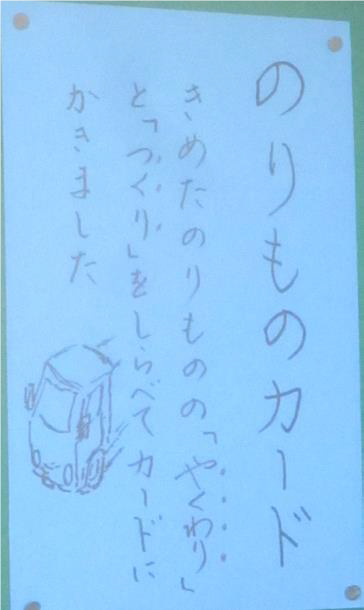 のりものカード
きめたのりものの「やくわり」
と「つくり」をしらべてカードに
かきました